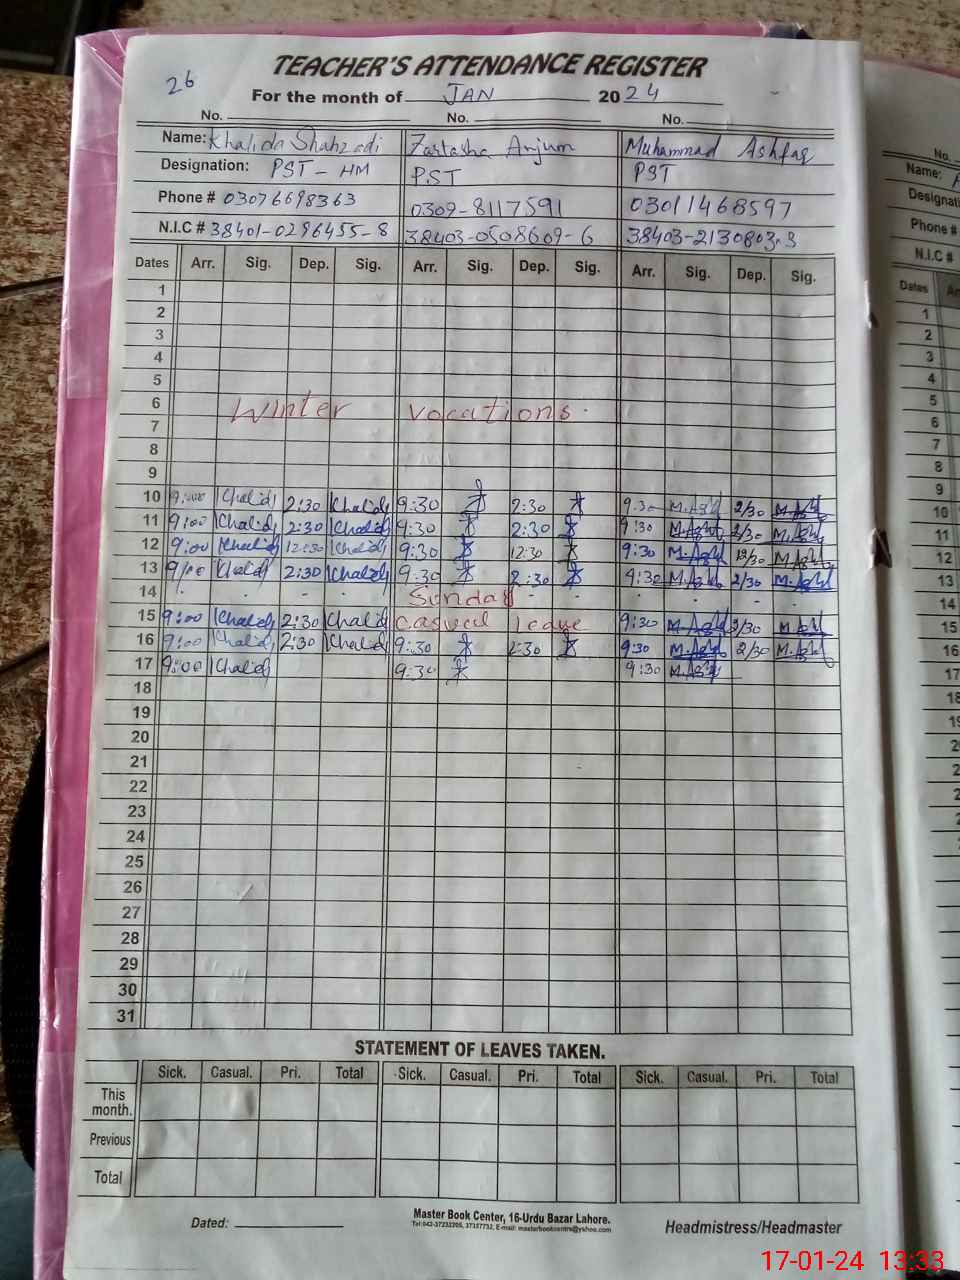 26
TEACHER'S ATTENDANCE REGISTER
For the month of JAN 2024
No. No. No.
Name: Khalida Shahzadi Zartasha Anjum Muhammad Ashfaq
Designation: PST - HM PST PST
Phone # 03076698363 0309-8117591 03011468597
N.I.C # 38401-0296455-8 38403-0508609-6 38403-2130803-3
Dates Arr. Sig. Dep. Sig. Arr. Sig. Dep. Sig. Arr. Sig. Dep. Sig.
1
2
3
4
5
6 Winter vocations.
7
8
9
10 9:00 Khalid 2:30 Khalid 9:30 2:30 9:30 2/30
11 9:00 Khalid 2:30 Khalid 9:30 2:30 9:30 2/30
12 9:00 Khalid 12:30 Khalid 9:30 12:30 9:30 12/30
13 9/00 Khalid 2:30 Khalid 9:30 2:30 9:30 2/30
14 Sunday
15 9:00 Khalid 2:30 Khalid casual leave 9:30 2/30
16 9:00 Khalid 2:30 Khalid 9:30 2:30 9:30 2/30
17 9:00 Khalid 9:30 9:30
18
19
20
21
22
23
24
25
26
27
28
29
30
31
STATEMENT OF LEAVES TAKEN.
Sick. Casual. Pri. Total Sick. Casual. Pri. Total Sick. Casual. Pri. Total
This month.
Previous
Total
Dated:
Master Book Center, 16-Urdu Bazar Lahore.
Headmistress/Headmaster
No.
Name:
Designati
Phone #
N.I.C #
Dates
1
2
3
4
5
6
7
8
9
10
11
12
13
14
15
16
17
18
19
17-01-24 13:33